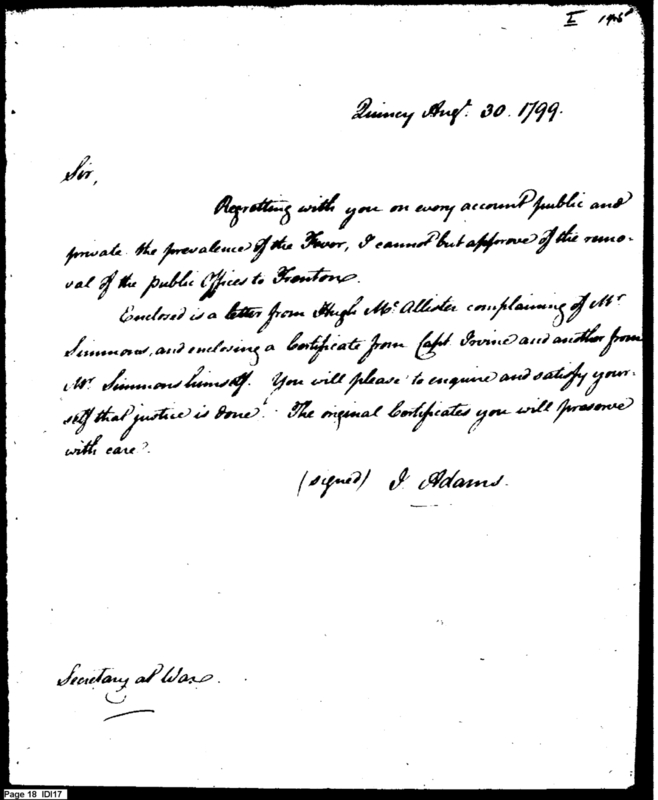 I
Quincy Augt. 30. 1799.
Sir,
Regretting with you on every account public and
private the prevalence of the Fever, I cannot but approve of the remo-
val of the public Offices to Trenton.
Enclosed is a letter from Hugh Mc. Allister complaining of Mr
Simmons, and enclosing a Certificate from Capt. Irvine and another from
Mr. Simmons himself. You will please to enquire and satisfy your-
self that justice is done. The original Certificates you will preserve
with care.
(signed) J. Adams.
Secretary at War.
Page 18 IDI17